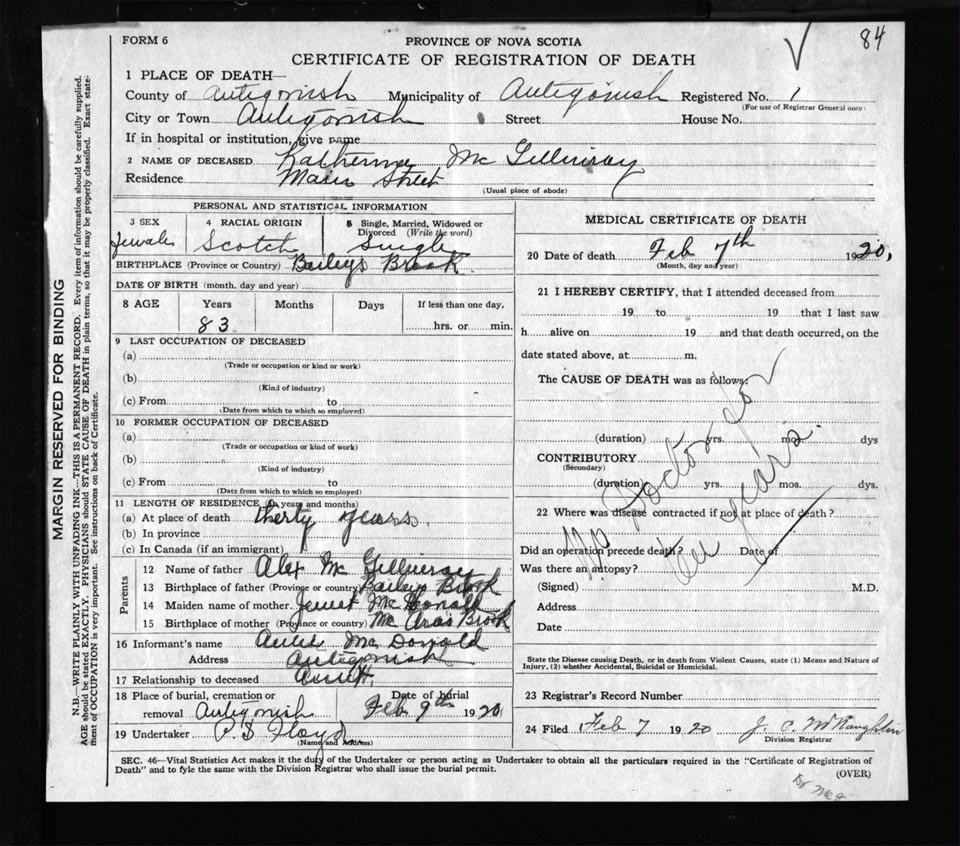 84
FORM 6
PROVINCE OF NOVA SCOTIA
CERTIFICATE OF REGISTRATION OF DEATH
1 PLACE OF DEATH—
County of Antigonish Municipality of Antigonish Registered No. 1
(For use of Registrar General only)
City or Town Antigonish Street House No.
If in hospital or institution, give name
2 NAME OF DECEASED Katherine Mc Gillivray
Residence Main Street
(Usual place of abode)
PERSONAL AND STATISTICAL INFORMATION
3 SEX 4 RACIAL ORIGIN 5 Single, Married, Widowed or Divorced (Write the word)
female Scotch Single
BIRTHPLACE (Province or Country) Baileys Brook
DATE OF BIRTH (month, day and year)
8 AGE Years Months Days If less than one day,
83 hrs. or min.
9 LAST OCCUPATION OF DECEASED
(a)
(Trade or occupation or kind or work)
(b)
(Kind of industry)
(c) From to
(Date from which to which so employed)
10 FORMER OCCUPATION OF DECEASED
(a)
(Trade or occupation or kind of work)
(b)
(Kind of industry)
(c) From to
(Date from which to which so employed)
11 LENGTH OF RESIDENCE (in years and months)
(a) At place of death thirty years.
(b) In province
(c) In Canada (if an immigrant)
Parents
12 Name of father Alex Mc Gillivray
13 Birthplace of father (Province or country) Baileys Brook
14 Maiden name of mother Jenet Mc Donald
15 Birthplace of mother (Province or country) Mc Aras Brook
16 Informant's name Mc Donald
Address Antigonish
17 Relationship to deceased
18 Place of burial, cremation or removal Antigonish Date of burial Feb 9th 1920
19 Undertaker P.S Floyd
(Name and Address)
MEDICAL CERTIFICATE OF DEATH
20 Date of death Feb 7th 1920,
(Month, day and year)
21 I HEREBY CERTIFY, that I attended deceased from
19 to 19 that I last saw
h alive on 19 and that death occurred, on the
date stated above, at m.
The CAUSE OF DEATH was as follows:
No Doctor for
ten years
(duration) yrs. mo. dys
CONTRIBUTORY
(Secondary)
(duration) yrs. mos. dys.
22 Where was disease contracted if not at place of death?
Did an operation precede death? Date of
Was there an autopsy?
(Signed) M.D.
Address
Date
State the Disease causing Death, or in death from Violent Causes, state (1) Means and Nature of
Injury, (2) whether Accidental, Suicidal or Homicidal.
23 Registrar's Record Number
24 Filed Feb 7 1920 J. C. McNaughton
Division Registrar
SEC. 46—Vital Statistics Act makes it the duty of the Undertaker or person acting as Undertaker to obtain all the particulars required in the "Certificate of Registration of
Death" and to fyle the same with the Division Registrar who shall issue the burial permit.
(OVER)
MARGIN RESERVED FOR BINDING
N.B.—WRITE PLAINLY WITH UNFADING INK—THIS IS A PERMANENT RECORD. Every item of information should be carefully supplied.
AGE should be stated EXACTLY. PHYSICIANS should STATE CAUSE OF DEATH in plain terms, so that it may be properly classified. Exact state-
ment of OCCUPATION is very important. See instructions on back of Certificate.